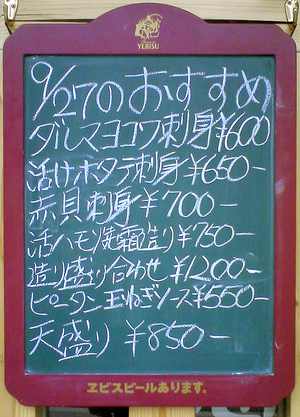 YEBISU
9/27のおすすめ
グルマヨコワ刺身¥600
活けホタテ刺身¥650-
赤貝刺身¥700-
活ハモ焼霜造り¥750-
造り盛り合わせ¥1200-
ピータン玉ねぎソース¥550-
天盛り ¥850-
ヱビスビールあります。